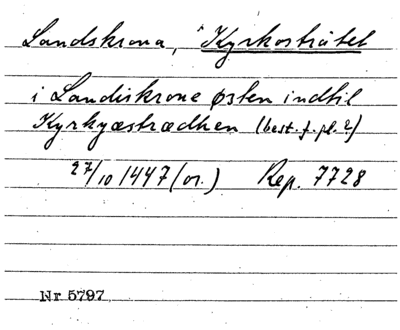 Landskrona, Kyrkosträtet
i Landiskrone østen indtil
Kyrkyæstrædhen (best. f. pl. ?)
27/10 1447 (or.) Rep. 7728
Nr 5797